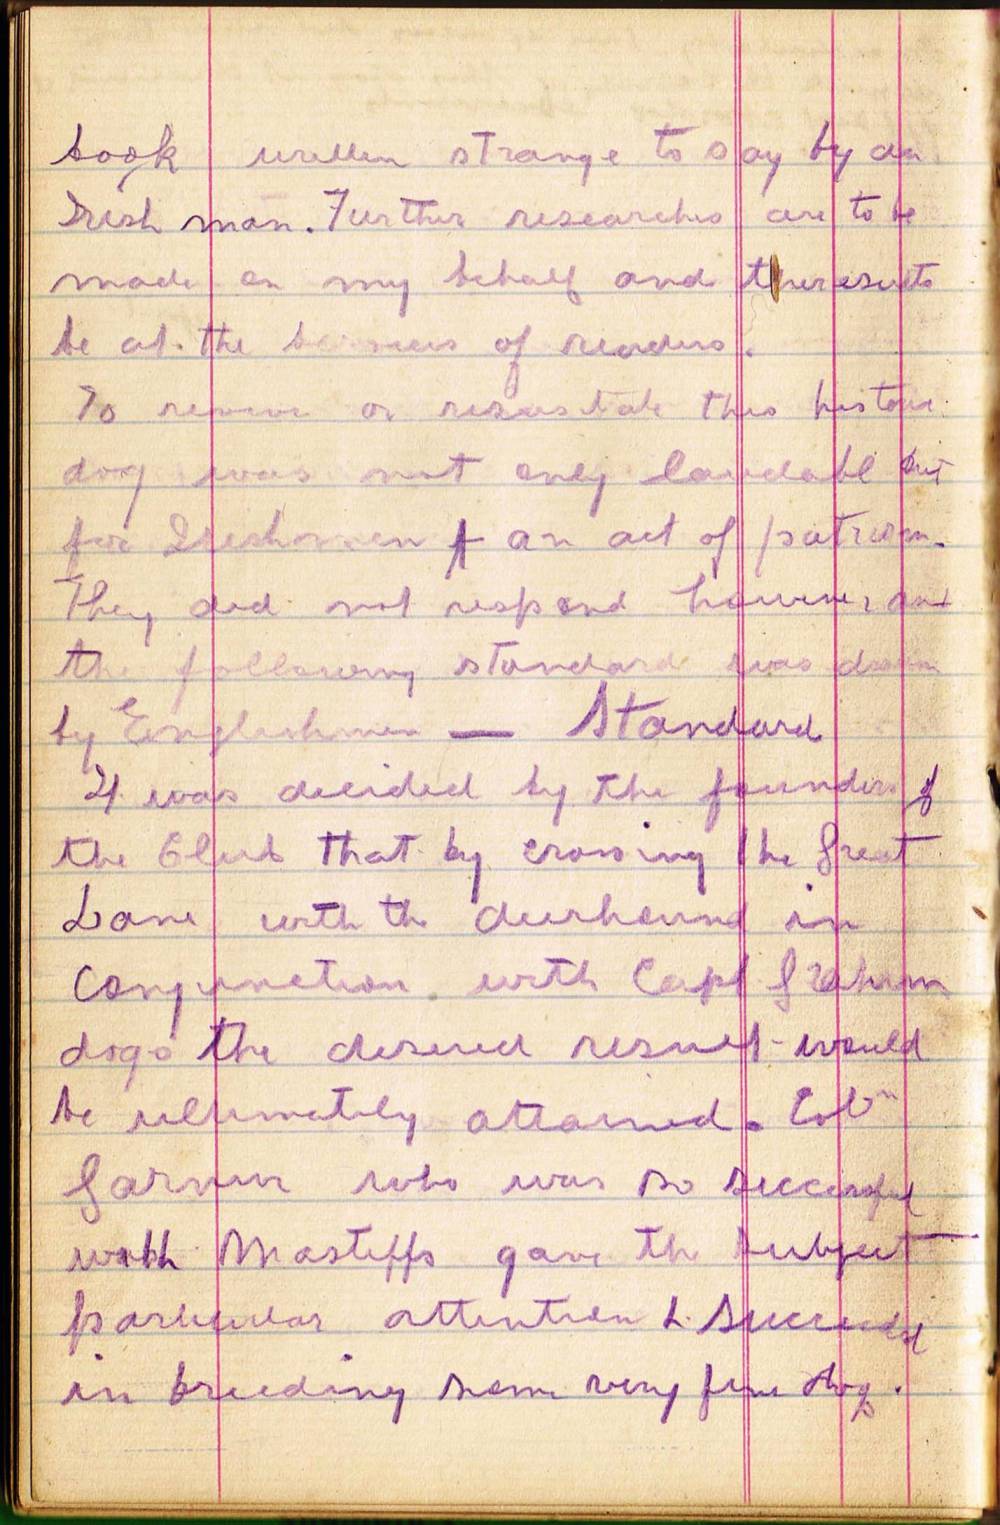 book written strange to say by an
Irish man. Further researches are to be
made on my behalf and the results
be at the service of readers.
To revive or resusitate this historic
dog was not only laudable but
for Irishmen an act of patriotism.
They did not respond however and
the following standard was drawn
by Englishmen — Standard
It was decided by the founders of
the Club that by crossing the Great
Dane with the deerhound in
conjunction with Capt Graham
dogs the desired result would
be ultimately attained. Coln
Garnier who was so successful
with Mastiffs gave the subject
particular attention & succeeded
in breeding some very fine dogs.